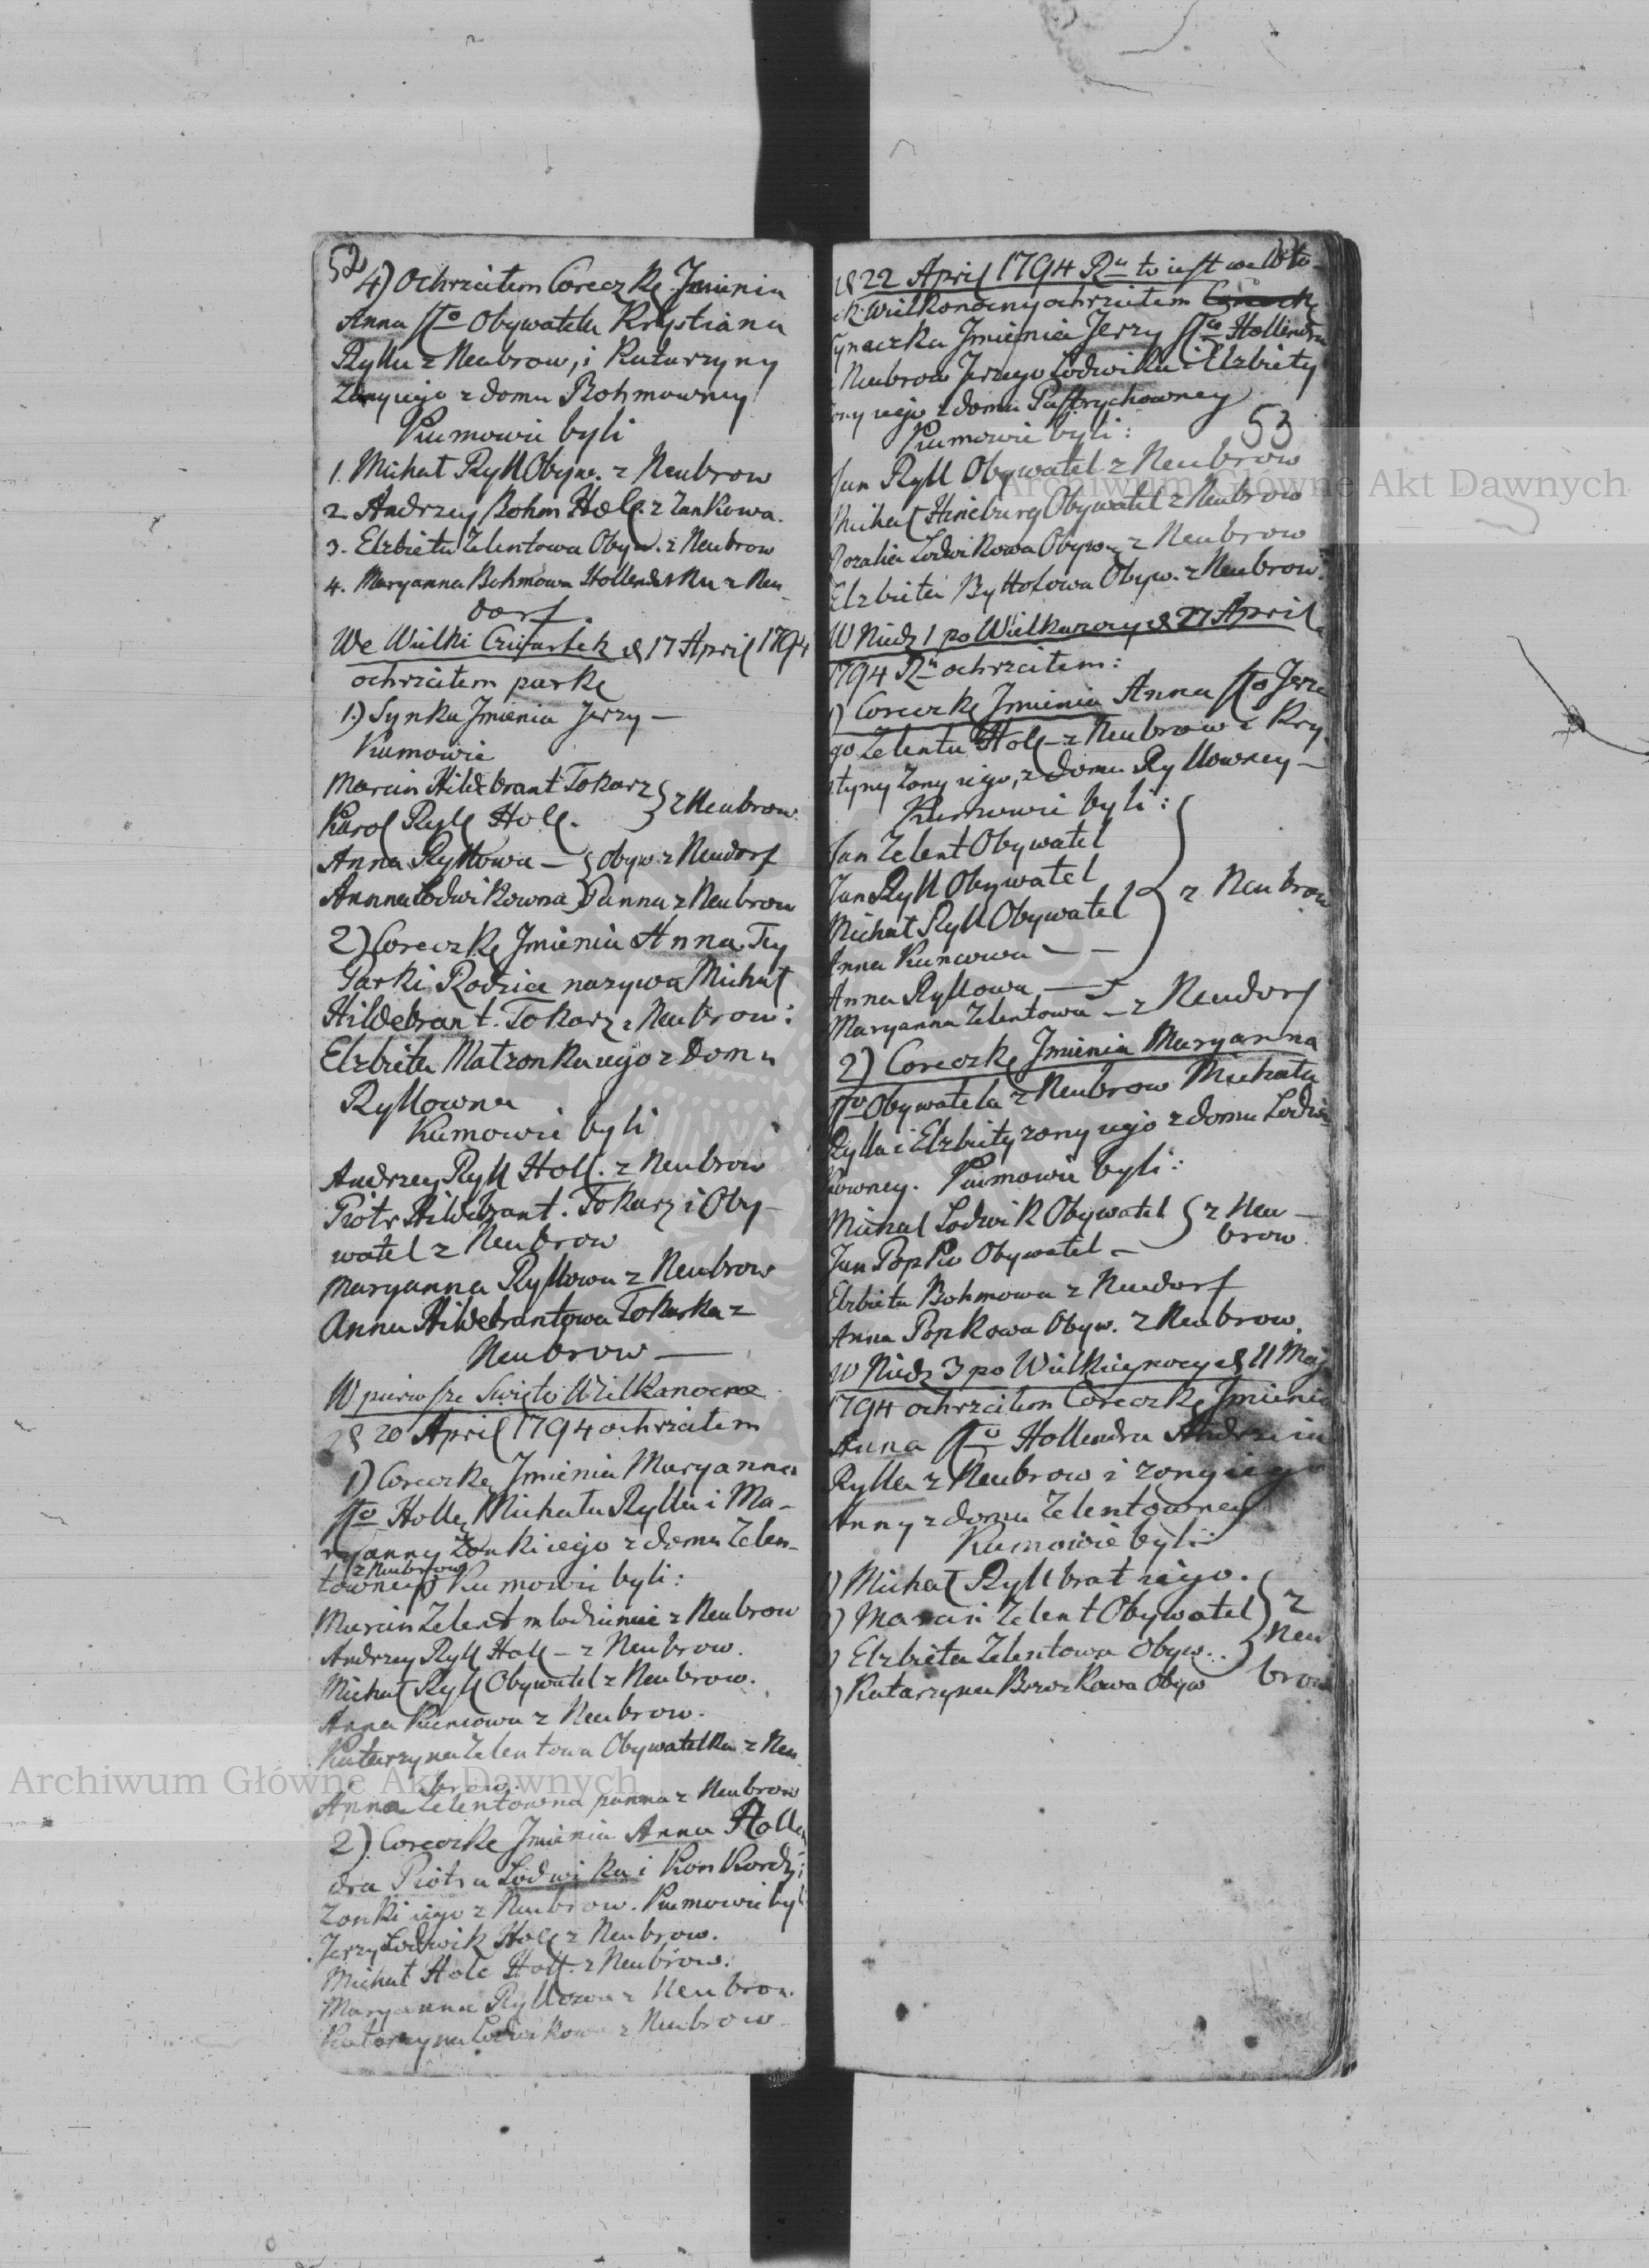 52
4) Ochrzciłem Coreczkę Jmienia
Anna Sto Obywatela Krystiana
Rylla z Neubrow, i Katarzyny
Zony iego z domu Bohmowney
Kumowie byli
1. Michał Ryll Obyw. z Neubrow
2. Andrzey Bohm Holl. z Zankowa.
3. Elzbieta Zelentowa Obyw. z Neubrow
4. Maryanna Bohmowa Hollenderka z Neu-
dorf.
We Wielki Czwartek d 17 April 1794
ochrzciłem parkę
1.) Synka Jmienia Jerzy —
Kumowie
Marcin Hildebrant Tokarz } z Neubrow.
Karol Ryll Holl.
Anna Ryllowa — { Obyw. z Neudorf
Annna Lodwikowna } Panna z Neubrow
2) Coreczkę Jmienia Anna. Tey
Parki Rodzice nazywa Michał
Hildebrant. Tokarz z Neubrow:
Elzbieta Małzonka iego z Domu
Ryllowna
Kumowie byli
Andrzey Ryll Holl. z Neubrow
Piotr Hildebrant. Tokarz i Oby-
watel z Neubrow
Maryanna Ryllowa z Neubrow
Anna Hildebrantowa Tokarka z
Neubrow —
W pierwsze Swięto Wielkanocne
d 20 April 1794 ochrzciłem
1) Coreczkę Jmienia Maryanna
Sto Holle Michała Rylla i Ma-
ryanny Zonki iego z domu Zelen-
z Neubrow
towney) Kumowie byli:
Marcin Zelent mlodzienie z Neubrow
Andrzey Ryll Holl — z Neubrow.
Michał Ryll Obywatel z Neubrow.
Anna Kuncowa z Neubrow.
Katarzyna Zelentowa Obywatelka z Neu
brow.
Anna Zelentowna panna z Neubrow
2) Coreczkę Jmienia Anna Holle
dra Piotra Lodwika i Konkordyi
Zonki iego z Neubrow. Kumowie byli
Jerzy Lodwik Holl z Neubrow.
Michał Holc Holl. z Neubrow.
Maryanna Ryllowa z Neubrow.
Katarzyna Lodwikowa z Neubrow
d 22 April 1794 Ru to iest we Wto-
ek Wielkonocny ochrzciłem
Synaczka Jmienia Jerzy Sto Hollendra
z Neubrow Jerzego Lodwika i Elzbiety
ony iego z domu Pastrychowney
53
Kumowie byli:
Jan Ryll Obywatel z Neubrow
Michał Hineburg Obywatel z Neubrow
Rozalia Lodwikowa Obyw. z Neubrow
Elzbieta Byttofowa Obyw. z Neubrow.
W Niedz 1 po Wielkanocy d 27 April
1794 Ru ochrzciłem:
1) Coreczkę Jmienia Anna Sto Jerze
go Zelenta Holl — z Neubrow i Kry
styny Zony iego, z domu Ryllowney —
Kumowie byli:
Jan Zelent Obywatel
Jan Ryll Obywatel
Michał Ryll Obywatel } z Neubrow
Anna Kuncowa —
Anna Ryllowa —
Maryanna Zelentowa — z Neudorf
2) Coreczkę Jmienia Maryanna
Sto Obywatela z Neubrow Michała
Rylla i Elzbiety zony iego z domu Lodwi
kowney. Kumowie byli:
Michał Lodwik Obywatel } z Neu-
brow.
Jan Popko Obywatel —
Elzbieta Bohmowa z Neudorf
Anna Popkowa Obyw. z Neubrow.
W Niedz 3 po Wielkieynocy d 11 Maj
1794 ochrzciłem Coreczkę Jmienia
Anna Sto Hollendra Andrzeia
Rylla z Neubrow i zony iego
Anny z domu Zelentowney
Kumowie byli
1) Michał Ryll brat iego.
) Marcin Zelent Obywatel } z
Neu
) Elzbieta Zelentowa Obyw..
brow
) Katarzyna Bozkowa Obyw
Archiwum Główne Akt Dawnych
Archiwum Główne Akt Dawnych